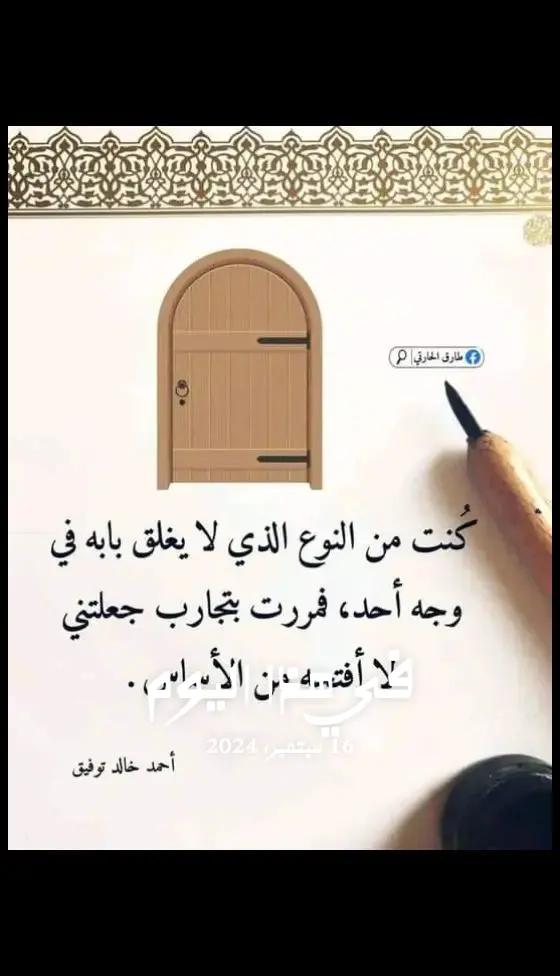 طارق الحارثي
كُنت من النوع الذي لا يغلق بابه في
وجه أحد، فمررت بتجارب جعلتني
لا أفتحه من الأساس .
في مثل هذا اليوم
16 سبتمبر، 2024
أحمد خالد توفيق